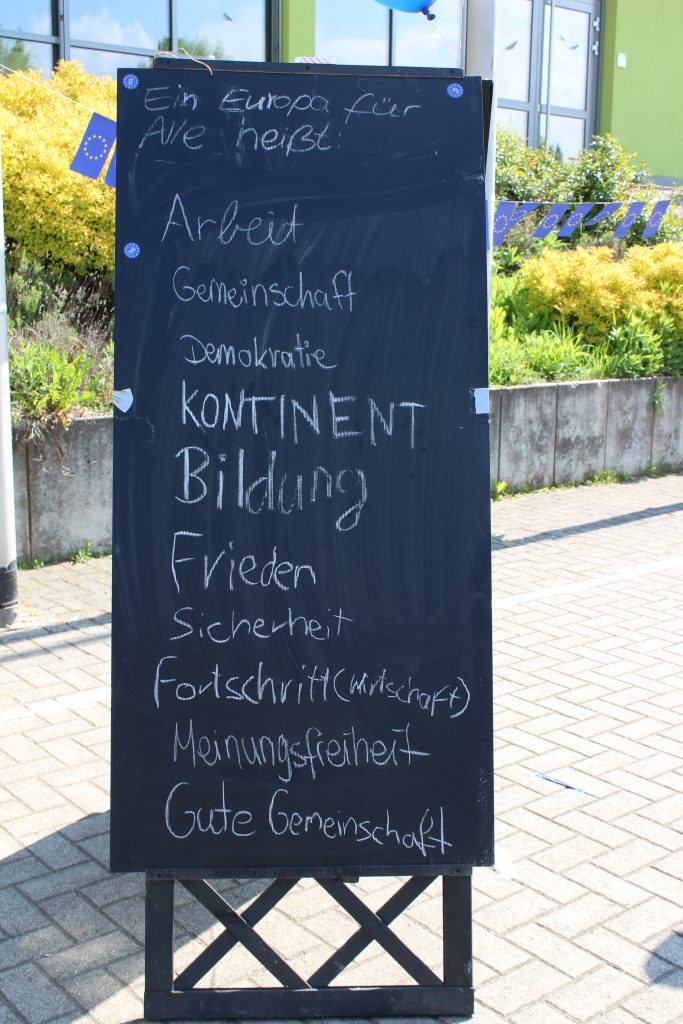 Ein Europa für
Alle heißt:
Arbeit
Gemeinschaft
Demokratie
KONTINENT
Bildung
Frieden
Sicherheit
Fortschritt (wirtschaft)
Meinungsfreiheit
Gute Gemeinschaft